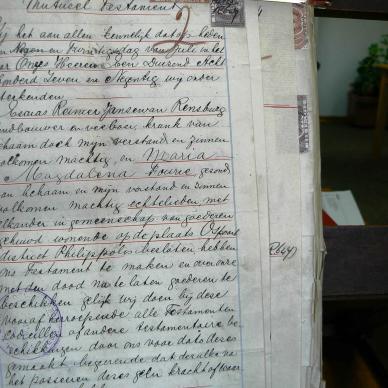 Mutueel Testament
Zij het aan allen kennelijk dat op heden
den Negen en Twintigsdag van Julie in het
Jaar Onzes Heeren Een Duizend Acht
Honderd Zeven en Negentig wij onder
teekenden
Esaias Reinier Janse van Rensburg
Landbouwer en veeboer, krank van
lichaam doch mijn verstand en zinnen
volkomen machtig, en Maria
Magdalena Fourie gezond
van lichaam en mijn verstand en zinnen
volkomen machtig echtelieden met
elkander in gemeenschap van goederen
gehuwd wonende op de plaats
district Philippolis besloten hebben
ons testament te maken en over onze
met den dood na te laten goederen te
beschikken gelijk wij doen bij deze
vooraf herroepende alle Testamenten
Codicillen of andere testamentaire be
schikkingen door ons voor dato dezes
gemaakt begeerende dat dezelve na
het passeren dezes geen kracht of waar